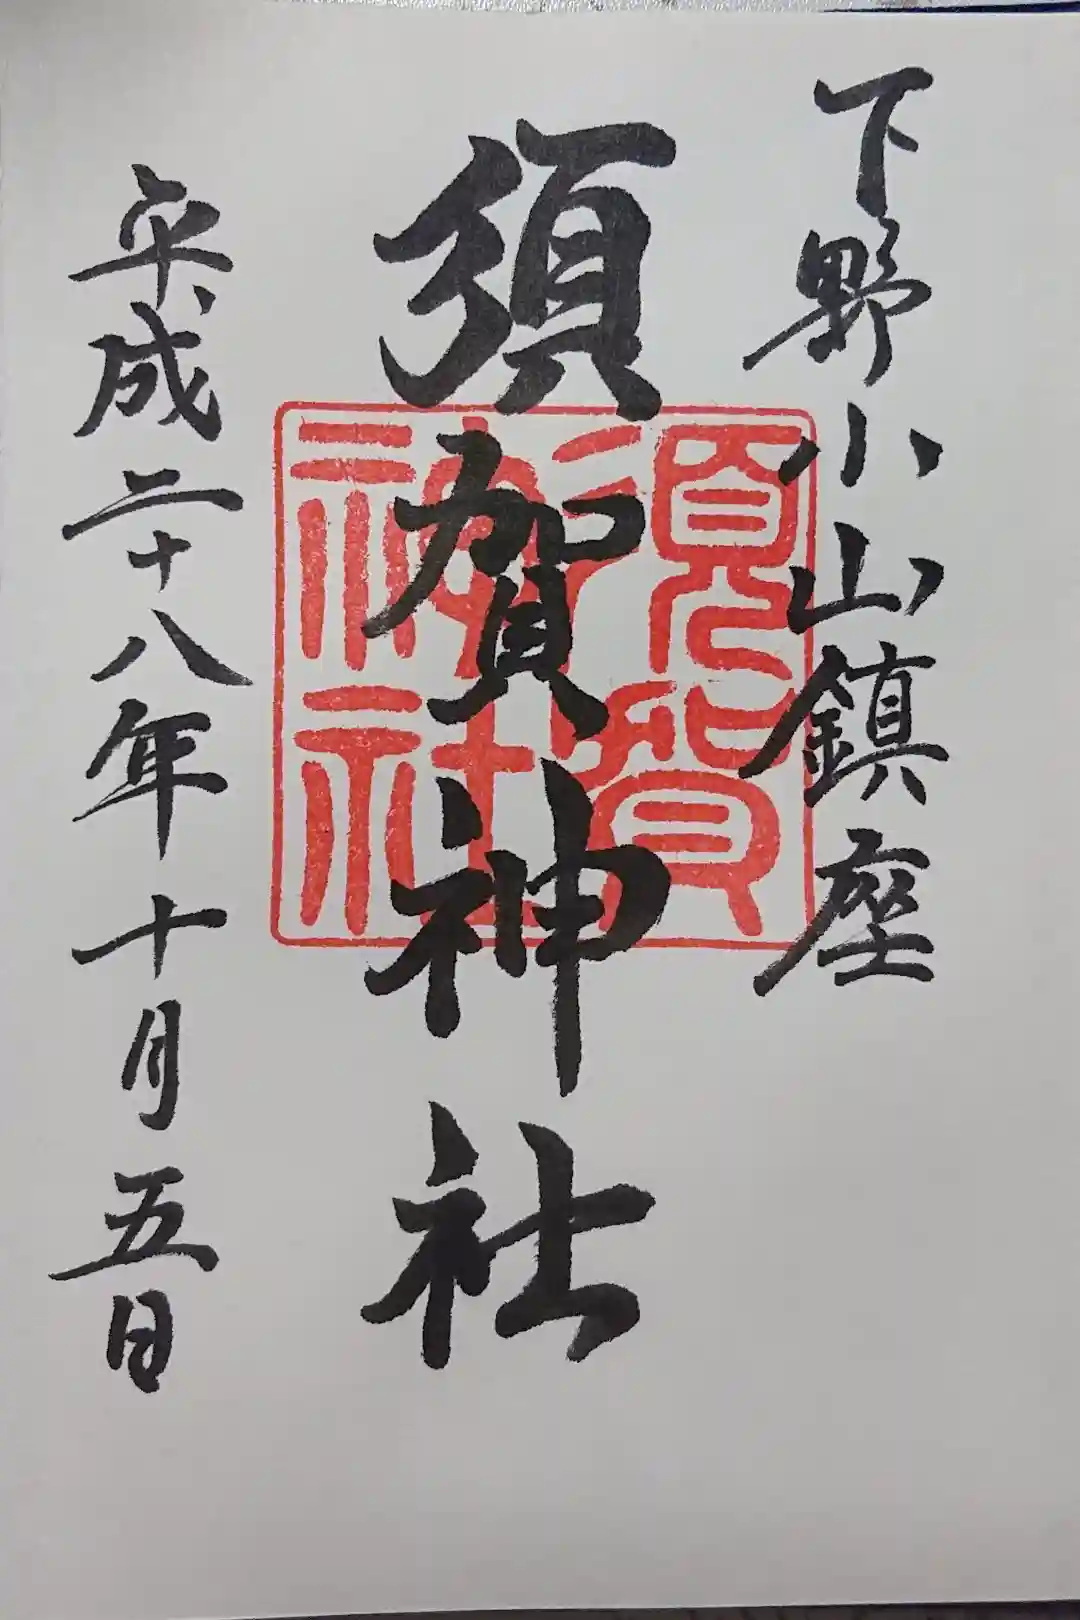 下野小山鎮座
須賀神社
須賀
神社
平成二十八年十月五日